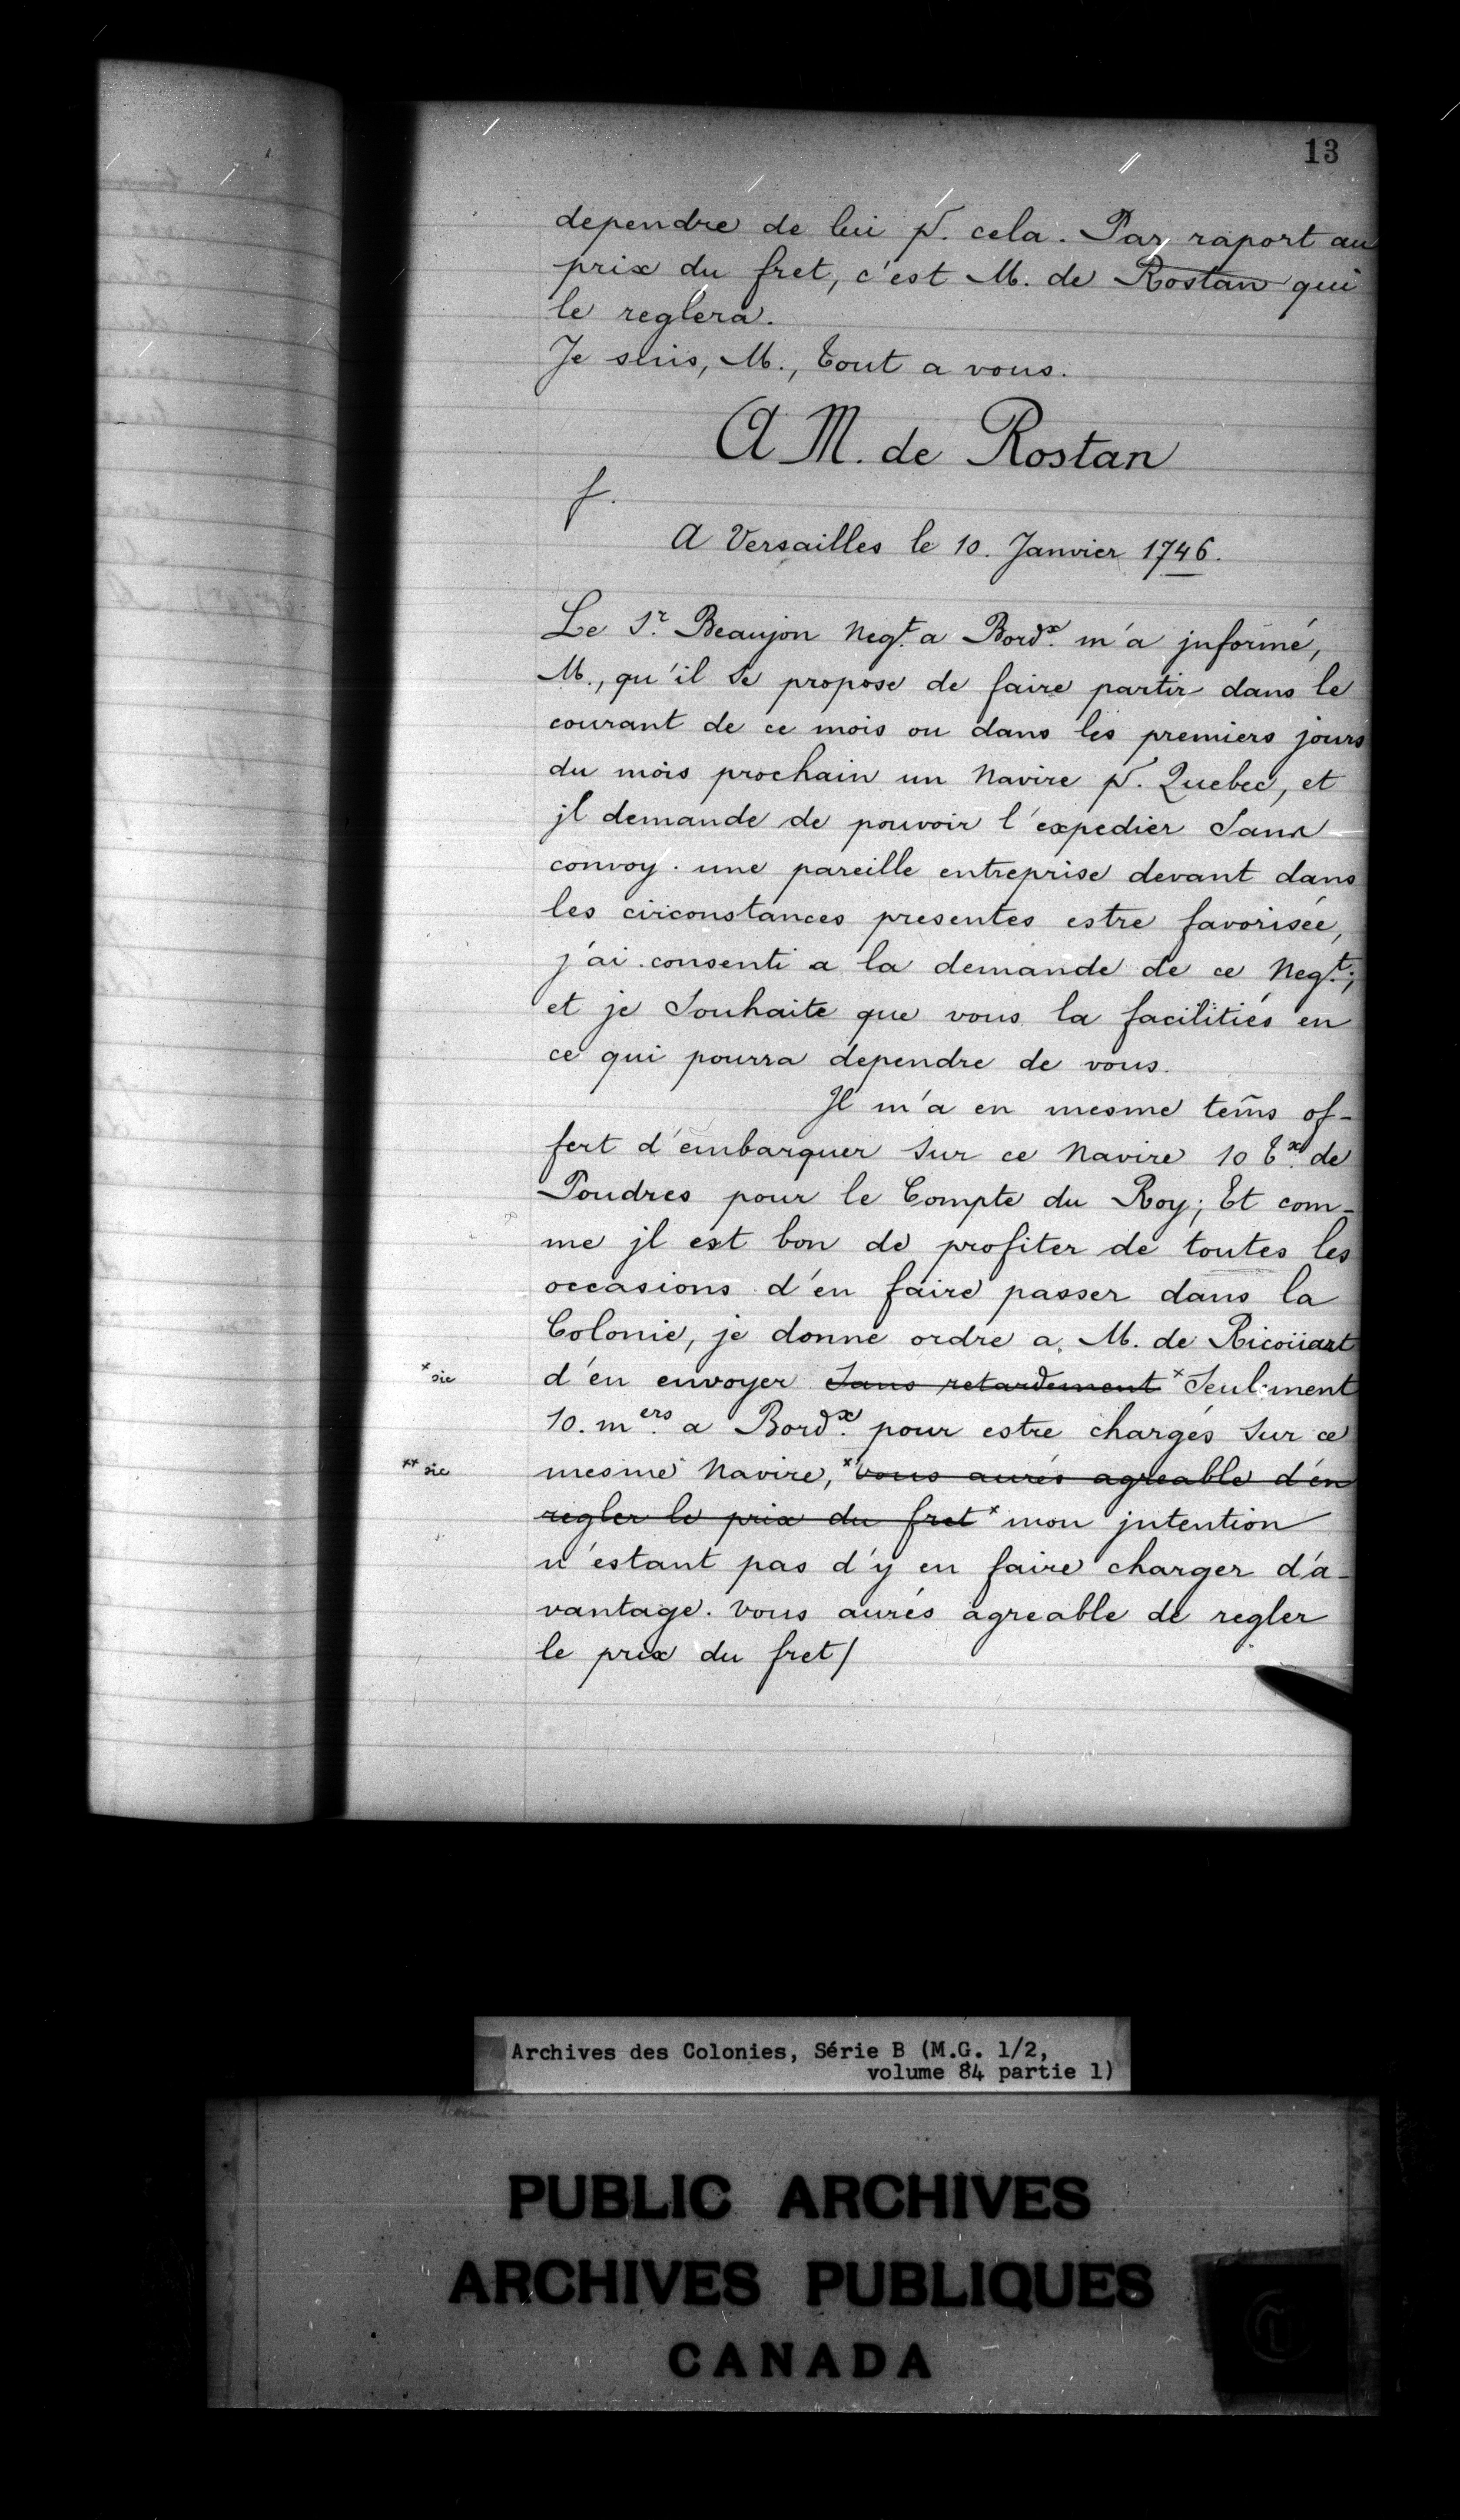 13
dependre de lui p^r. cela. Par raport au
prix du fret, c'est M. de Rostan qui
le reglera.
Je suis, M., tout a vous.
A M. de Rostan
f.
A Versailles le 10. Janvier 1746.
Le S^r. Beaujon Neg^t. a Bord^x. m'a jnformé,
M., qu'il se propose de faire partir dans le
courant de ce mois ou dans les premiers jours
du mois prochain un Navire p^r. Quebec, et
jl demande de pouvoir l'expedier Sans
convoy. une pareille entreprise devant dans
les circonstances presentes estre favorisée,
j'ai consenti a la demande de ce Neg^t.;
et je Souhaite que vous la facilitiés en
ce qui pourra dependre de vous.
Jl m'a en mesme tem̃s of-
fert d'embarquer Sur ce Navire 10 t^x. de
Poudres pour le Compte du Roy; Et com-
me jl est bon de profiter de toutes les
occasions d'en faire passer dans la
Colonie, je donne ordre a M. de Ricoüart
x sic d'en envoyer ~~Sans retardement~~ x Seulement
10. m^ers. a Bord^x. pour estre chargés Sur ce
xx sic mesme Navire, x ~~vous aurés agreable d'en~~
~~regler le prix du fret~~ x mon jntention
n'estant pas d'y en faire charger d'a-
vantage. Vous aurés agreable de regler
le prix du fret/
Archives des Colonies, Série B (M.G. 1/2,
volume 84 partie 1)
PUBLIC ARCHIVES
ARCHIVES PUBLIQUES
CANADA